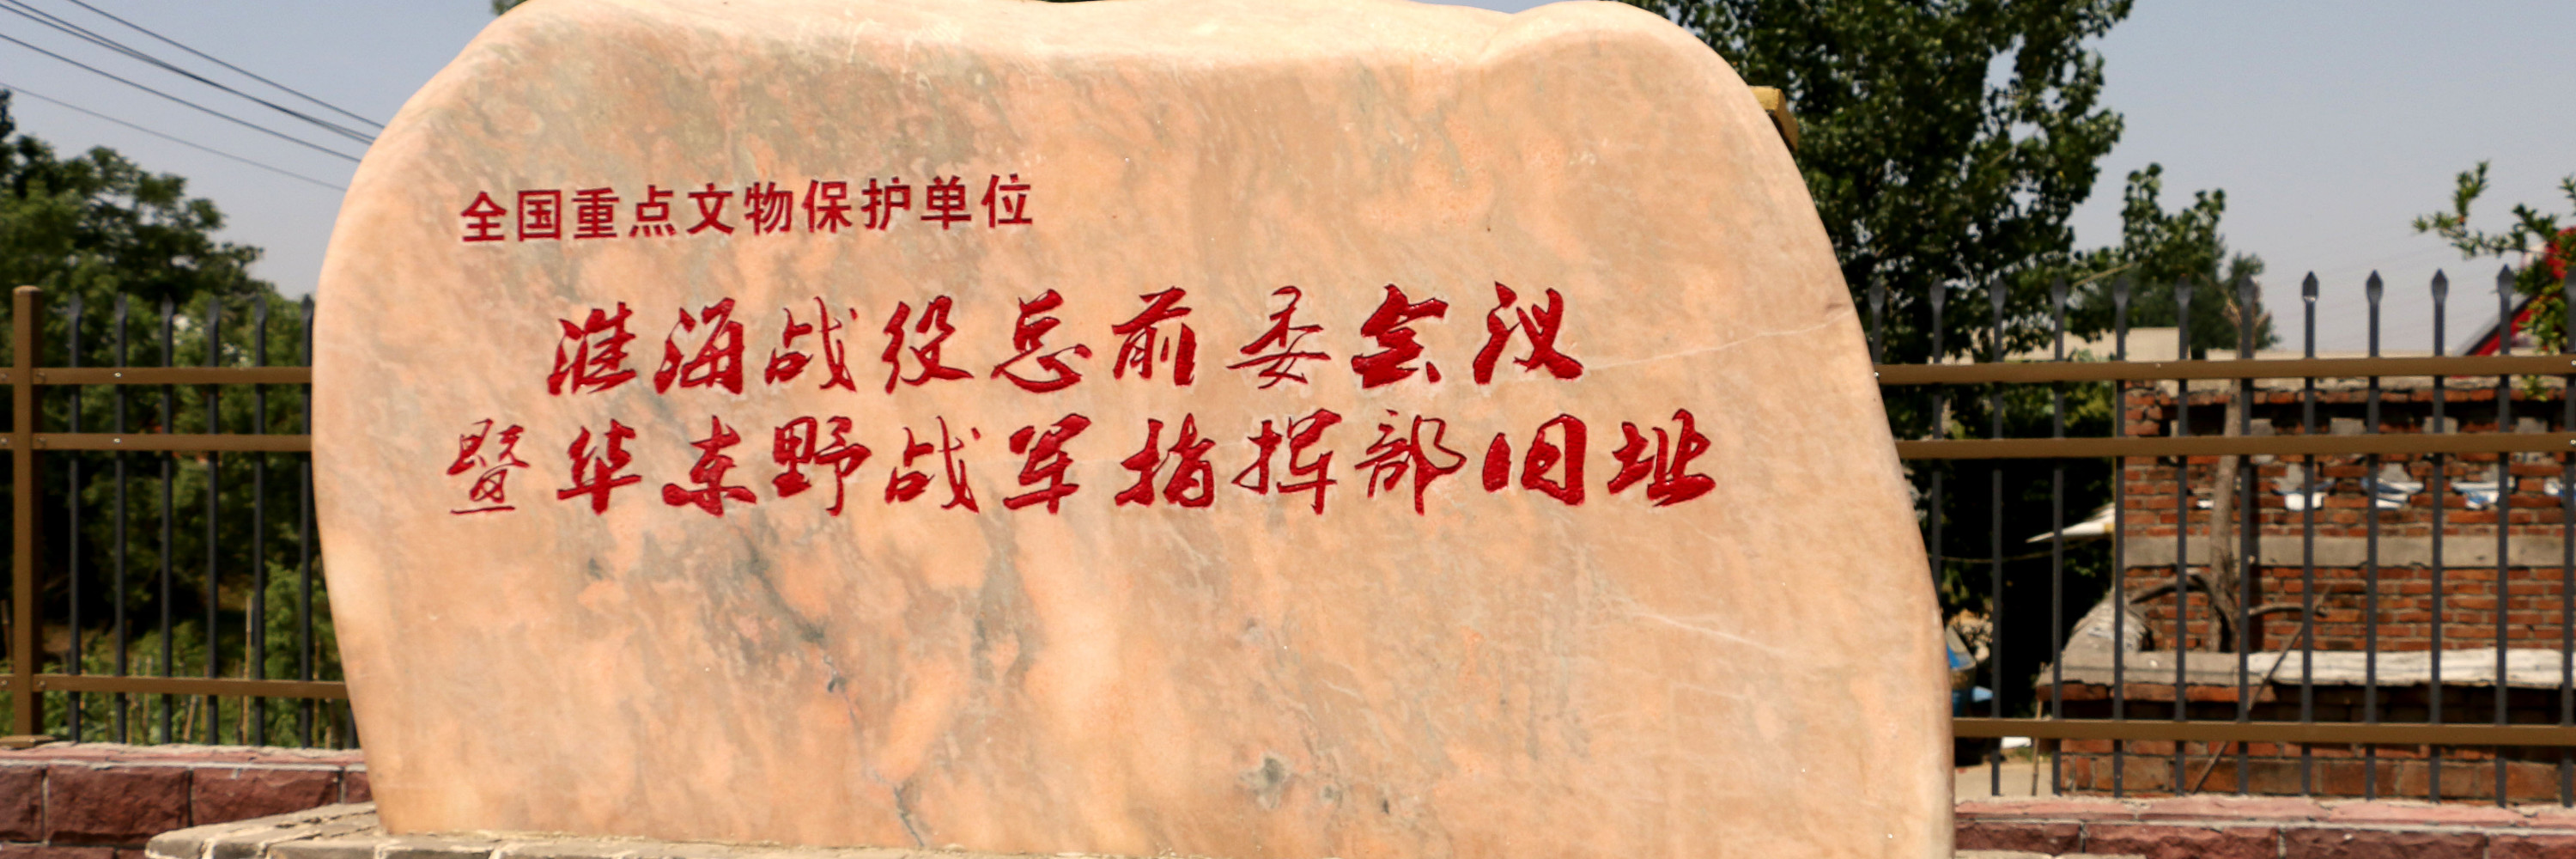 全国重点文物保护单位
淮海战役总前委会议
暨华东野战军指挥部旧址